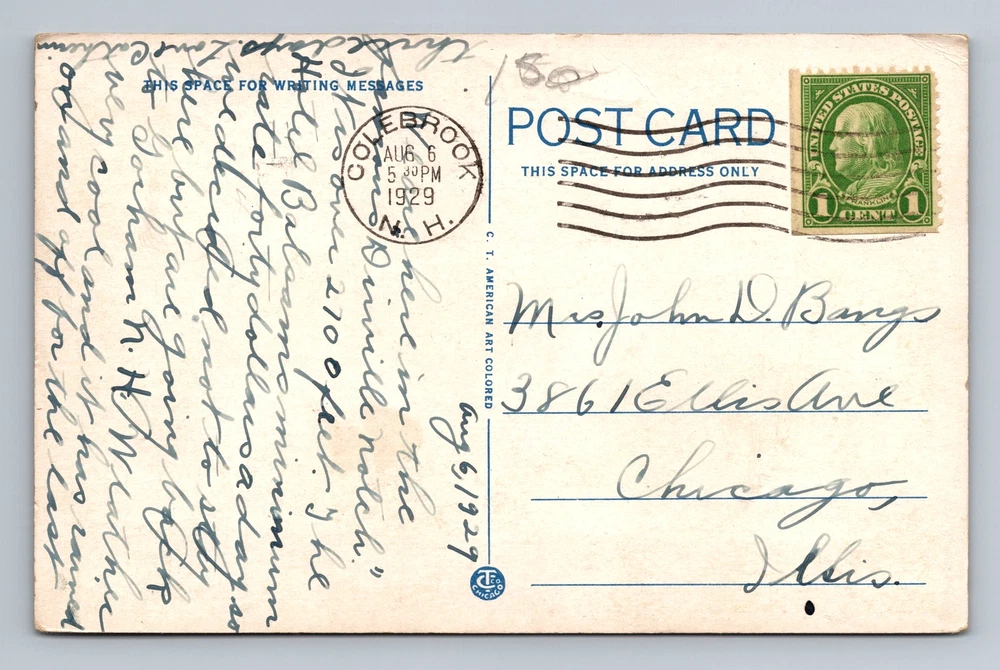 THIS SPACE FOR WRITING MESSAGES
Aug 6, 1929
here in the
Dixville notch"
I was over 2700 feet. The
Hotel Balsams minimum
rate forty dollars a day so
we decided not to stay
here but are going back
to Gorham N. H. Weather
very cool and it has rained
off and on for the last
three days. Love Cathern.
COLEBROOK
AUG 6
5 30 PM
1929
N. H.
C. T. AMERICAN ART COLORED
CHICAGO
180
POST CARD
THIS SPACE FOR ADDRESS ONLY
UNITED STATES POSTAGE
FRANKLIN
1 CENT 1
Mrs. John D. Bangs
3861 Ellis Ave
Chicago,
Ills.